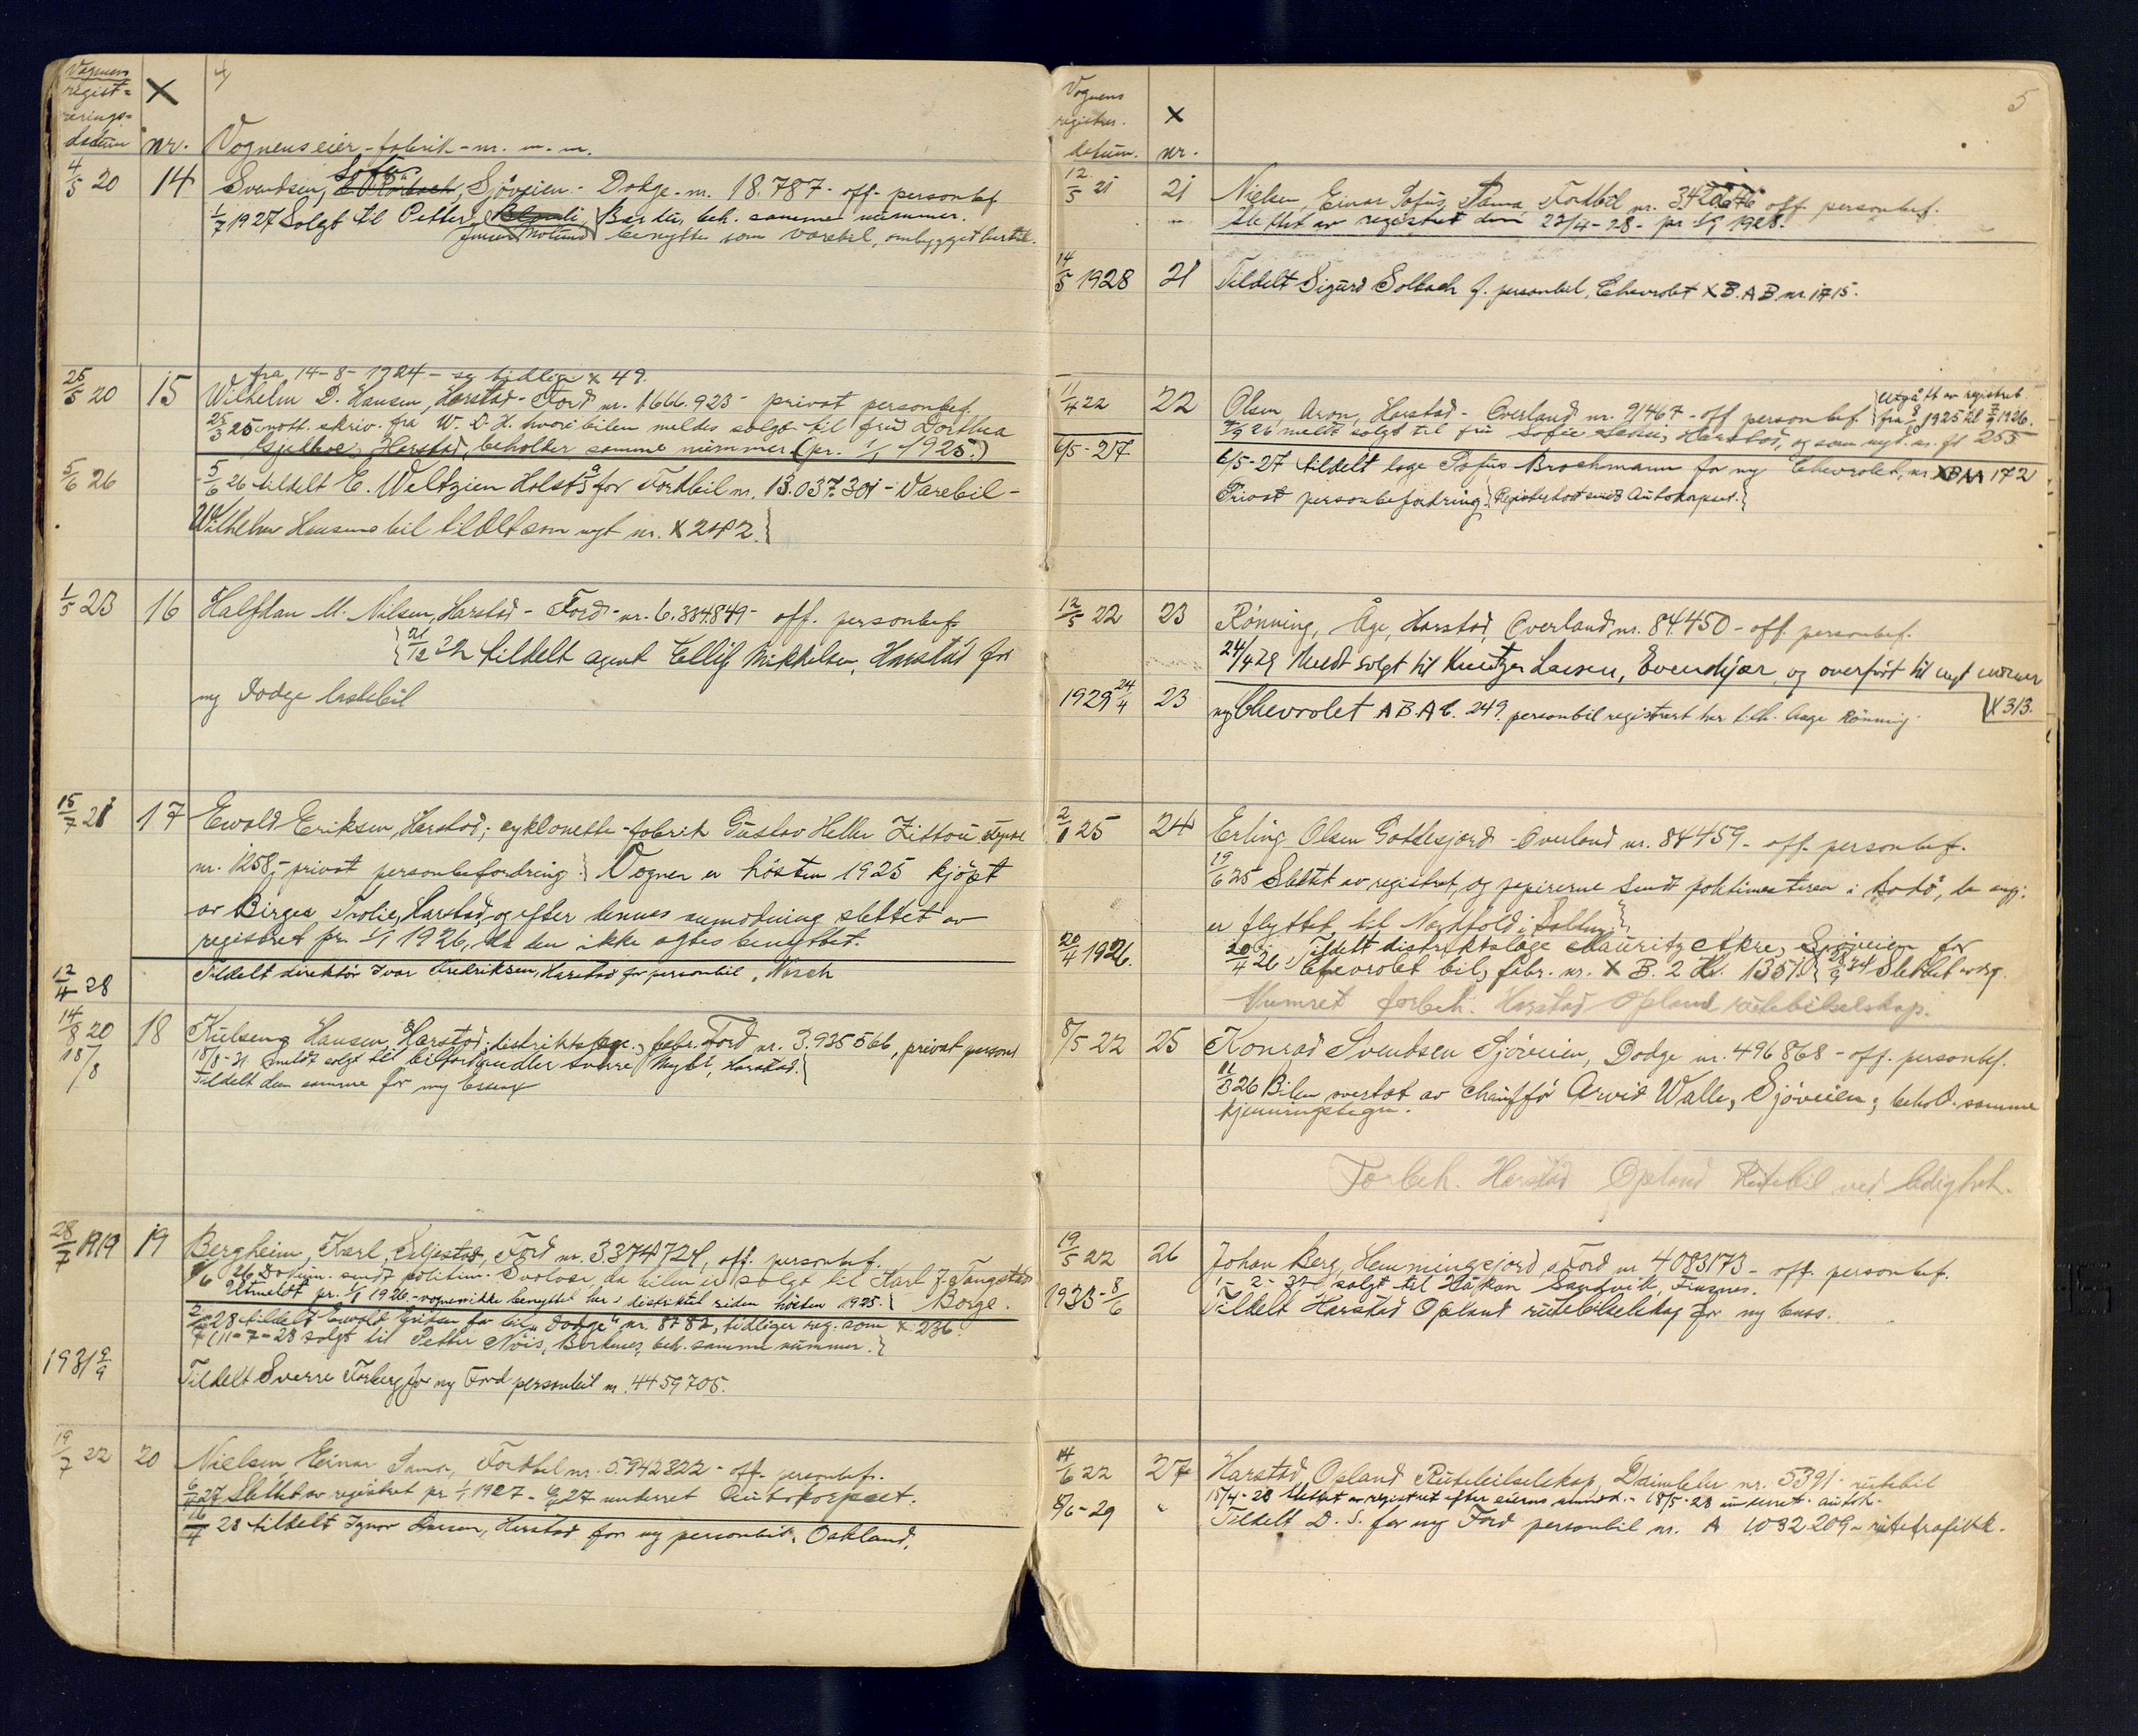 Vognens
regist=
rerings=
datum
X
nr.
4
Vognens eier - fabrik - nr. m. m.
4/5 20 14 Svendsen, Sjöveien - Dodge - nr. 18.787 - off. personbef
1/7 1927 Solgt til Petter Bardu, beh. samme nummer.
Jensen benyttes som varebil, ombygget hertil.
fra 14-8-1924 - se tidligere X 49.
25/5 20 15 Wilhelm D. Hansen, Harstad - Ford nr. 1666.923 - privat personbef.
25/3 25 mott. skriv. fra W. D. H. hvori bilen meldes solgt til fru Dorthea
Harstad, beholder samme nummer (pr. 1/1 1925.)
5/6 26 5/6 26 tildelt E. Weltzien Holst for Fordbil nr. 13.037.301 - Varebil -
Wilhelm Hansens bil tildelt som nyt nr. X 242.}
1/5 23 16 Halfdan M. Nilsen, Harstad - Ford - nr. 6.334.849 - off. personbef
{21/12 32 tildelt agent Ellif Mikkelsen, Harstad for
ny Dodge lastebil
15/7 21 17 Ewald Eriksen, Harstad; cyklonette - fabrik Gustav Heller Zittau
nr. 1258; - privat personbefordring.} Vognen er hösten 1925 kjöpt
av Birger Harstad, og efter dennes anmodning slettet av
registret pr. 1/1 1926, da den ikke agtes benyttet.
12/4 28 Tildelt direktör Ivar Fredriksen, Harstad for personbil, Nasch
14/8 20 18 Hansen, Harstad; distriktslæge; fabr. Ford nr. 3.935566, privat person
18/8 18/8-31 meldt solgt til bilforhandler Sverre Myhr, Harstad.}
Tildelt den samme for ny Essex
28/7 1919 19 Bergheim, Karl, Seljestad, Ford nr. 3374724, off. personbef.
1/6 26 sendt politim. Svolvær, da bilen er solgt til Karl J. Tangstad
Utmeldt pr. 1/1 1926 - vognen ikke benyttet her i distriktet siden hösten 1925.} Borge.
28 tildelt Ewald Eriksen for bil "Dodge" nr. 8782, tidligere reg. som X 236.
11-7-28 solgt til Petter Nöis, beh. samme nummer.}
1931 9/9 Tildelt Sverre Forberg for ny Ford personbil nr. 4459705.
19/7 22 20 Nielsen, Einar Sama, Fordbil nr. 5.942822 - off. personbef.
6/4 27 Slettet av registret pr 1/1 1927 - 6/4 27 underret Autokorpset.
16/4 28 tildelt Ignar Larsen, Harstad for ny personbil, Oakland.
Vognens
registrer.
datum.
X
nr.
5
12/5 21 21 Nielsen, Einar Sofus, Sama, Fordbil nr. off. personbef.
slettet av registret den 23/4-28 - pr 1/1 1928.
14/5 1928 21 Tildelt Sigurd Solbach f. personbil, Chevrolet X B. A B. nr. 1715.
11/4 22 22 Olsen, Aron, Harstad - Overland nr. 91467 - off personbef. {Utgått av registret
fra 1925 til 1926.
26 meldt solgt til fru Sofie Harstad, og som nyt nr. 255
6/5-27. 6/5-27 tildelt læge Sofus Brochmann for ny Chevrolet, nr. 172
Privat personbefordring.
12/5 22 23 Rönning, Åge, Harstad, Overland nr. 84.450 - off. personbef.
24/4 29 Meldt solgt til Kreutzer Larsen, Evenskjær, og overfört til nyt nummer
X 313.
1929 24/4 23 ny Chevrolet A B. A C. 249. personbil registrert her tilh. Aage Rönning.
2/1 25 24 Erling Olsen Gottesjord - Overland nr. 84459 - off. personbef.
19/6 25 Slettet av registret, og papirerne sendt politimesteren i Bodö, da ang:
er flyttet til Nordfold i Salten}
20/4 1926. 20/4 26 Tildelt distriktslæge Mauritz Akre, Sjöveien for
Chevrolet bil, fabr. nr. X B. 2 K. 13510} Slettet av reg.
Numret forbeh. Harstad Opland rutebilselskap.
8/5 22 25 Konrad Svendsen Sjöveien, Dodge nr. 496868 - off. personbef.
11/3 26 Bilen overtat av chaufför Arvid Walle, Sjöveien; behold. samme
kjenningstegn.
Forbeh. Harstad Opland Rutebil ved ledighet.
19/5 22 26 Johan Berg, Hemmingsjord, Ford nr 4083173 - off. personbef.
1-2-32 solgt til Håkon Sandvik, Finsnes.
1933-8/6 Tildelt Harstad Opland rutebilselskap for ny buss.
14/6 22 27 Harstad Opland Rutebilselskap, Daimler nr. 5391 - rutebil
18/4-28 slettet av registret efter eierens anmod. - 18/5-28 underret. autok.
8/6-29 " Tildelt D. S. for ny Ford personbil nr. A 1032209 - rutetrafikk.